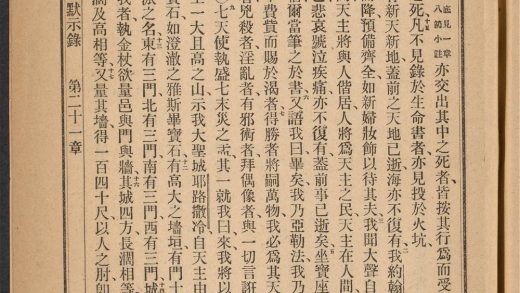 見一章
八節小註
亦交出其中之死者皆按其行爲而受
死凡不見錄於生命書者亦見投於火坑
新天新地蓋前之天地已逝海亦不復有我約翰
降預備齊全如新婦妝飾以待其夫我聞大聲自
天主將與人偕居人將爲天主之民天主在人間
悲哀號泣疾痛亦不復有蓋前事已逝矣坐寶座
爾當筆之於書又語我曰畢矣我乃亞勒法我乃
費賞而賜於渴者得勝者將嗣萬物我必爲其天
者兇殺者淫亂者有邪術者拜偶像者與一切言誑
〇七天使執盛七末災之盂其一就我曰來我將以
一大且高之山示我大聖城耶路撒冷自天主由
寶石如澄澈之雅斯畢寶石有高大之墻垣有門十
派之名東有三門北有三門南有三門西有三門城
我者執金杖欲量邑與門與墻其城四方長濶相等
濶及高相等又量其墻得一百四十尺以人之肘卽
默示錄 第二十一章